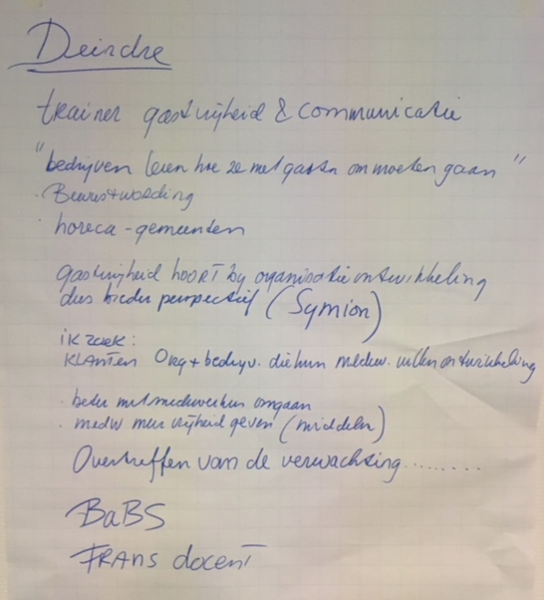 Deirdre
trainer gastvrijheid & communicatie
"bedrijven leren hoe ze met gasten om moeten gaan"
· Bewustwording
· horeca - gemeenten
gastvrijheid hoort bij organisatieontwikkeling
dus bieder perspectief (Symion)
ik zoek:
KLANTEN Org + bedrijv. die hun medew. willen ontwikkeling
· beter met medewerkers omgaan
· medew meer vrijheid geven (middelen)
Overtreffen van de verwachting........
BaBS
FRANS docent